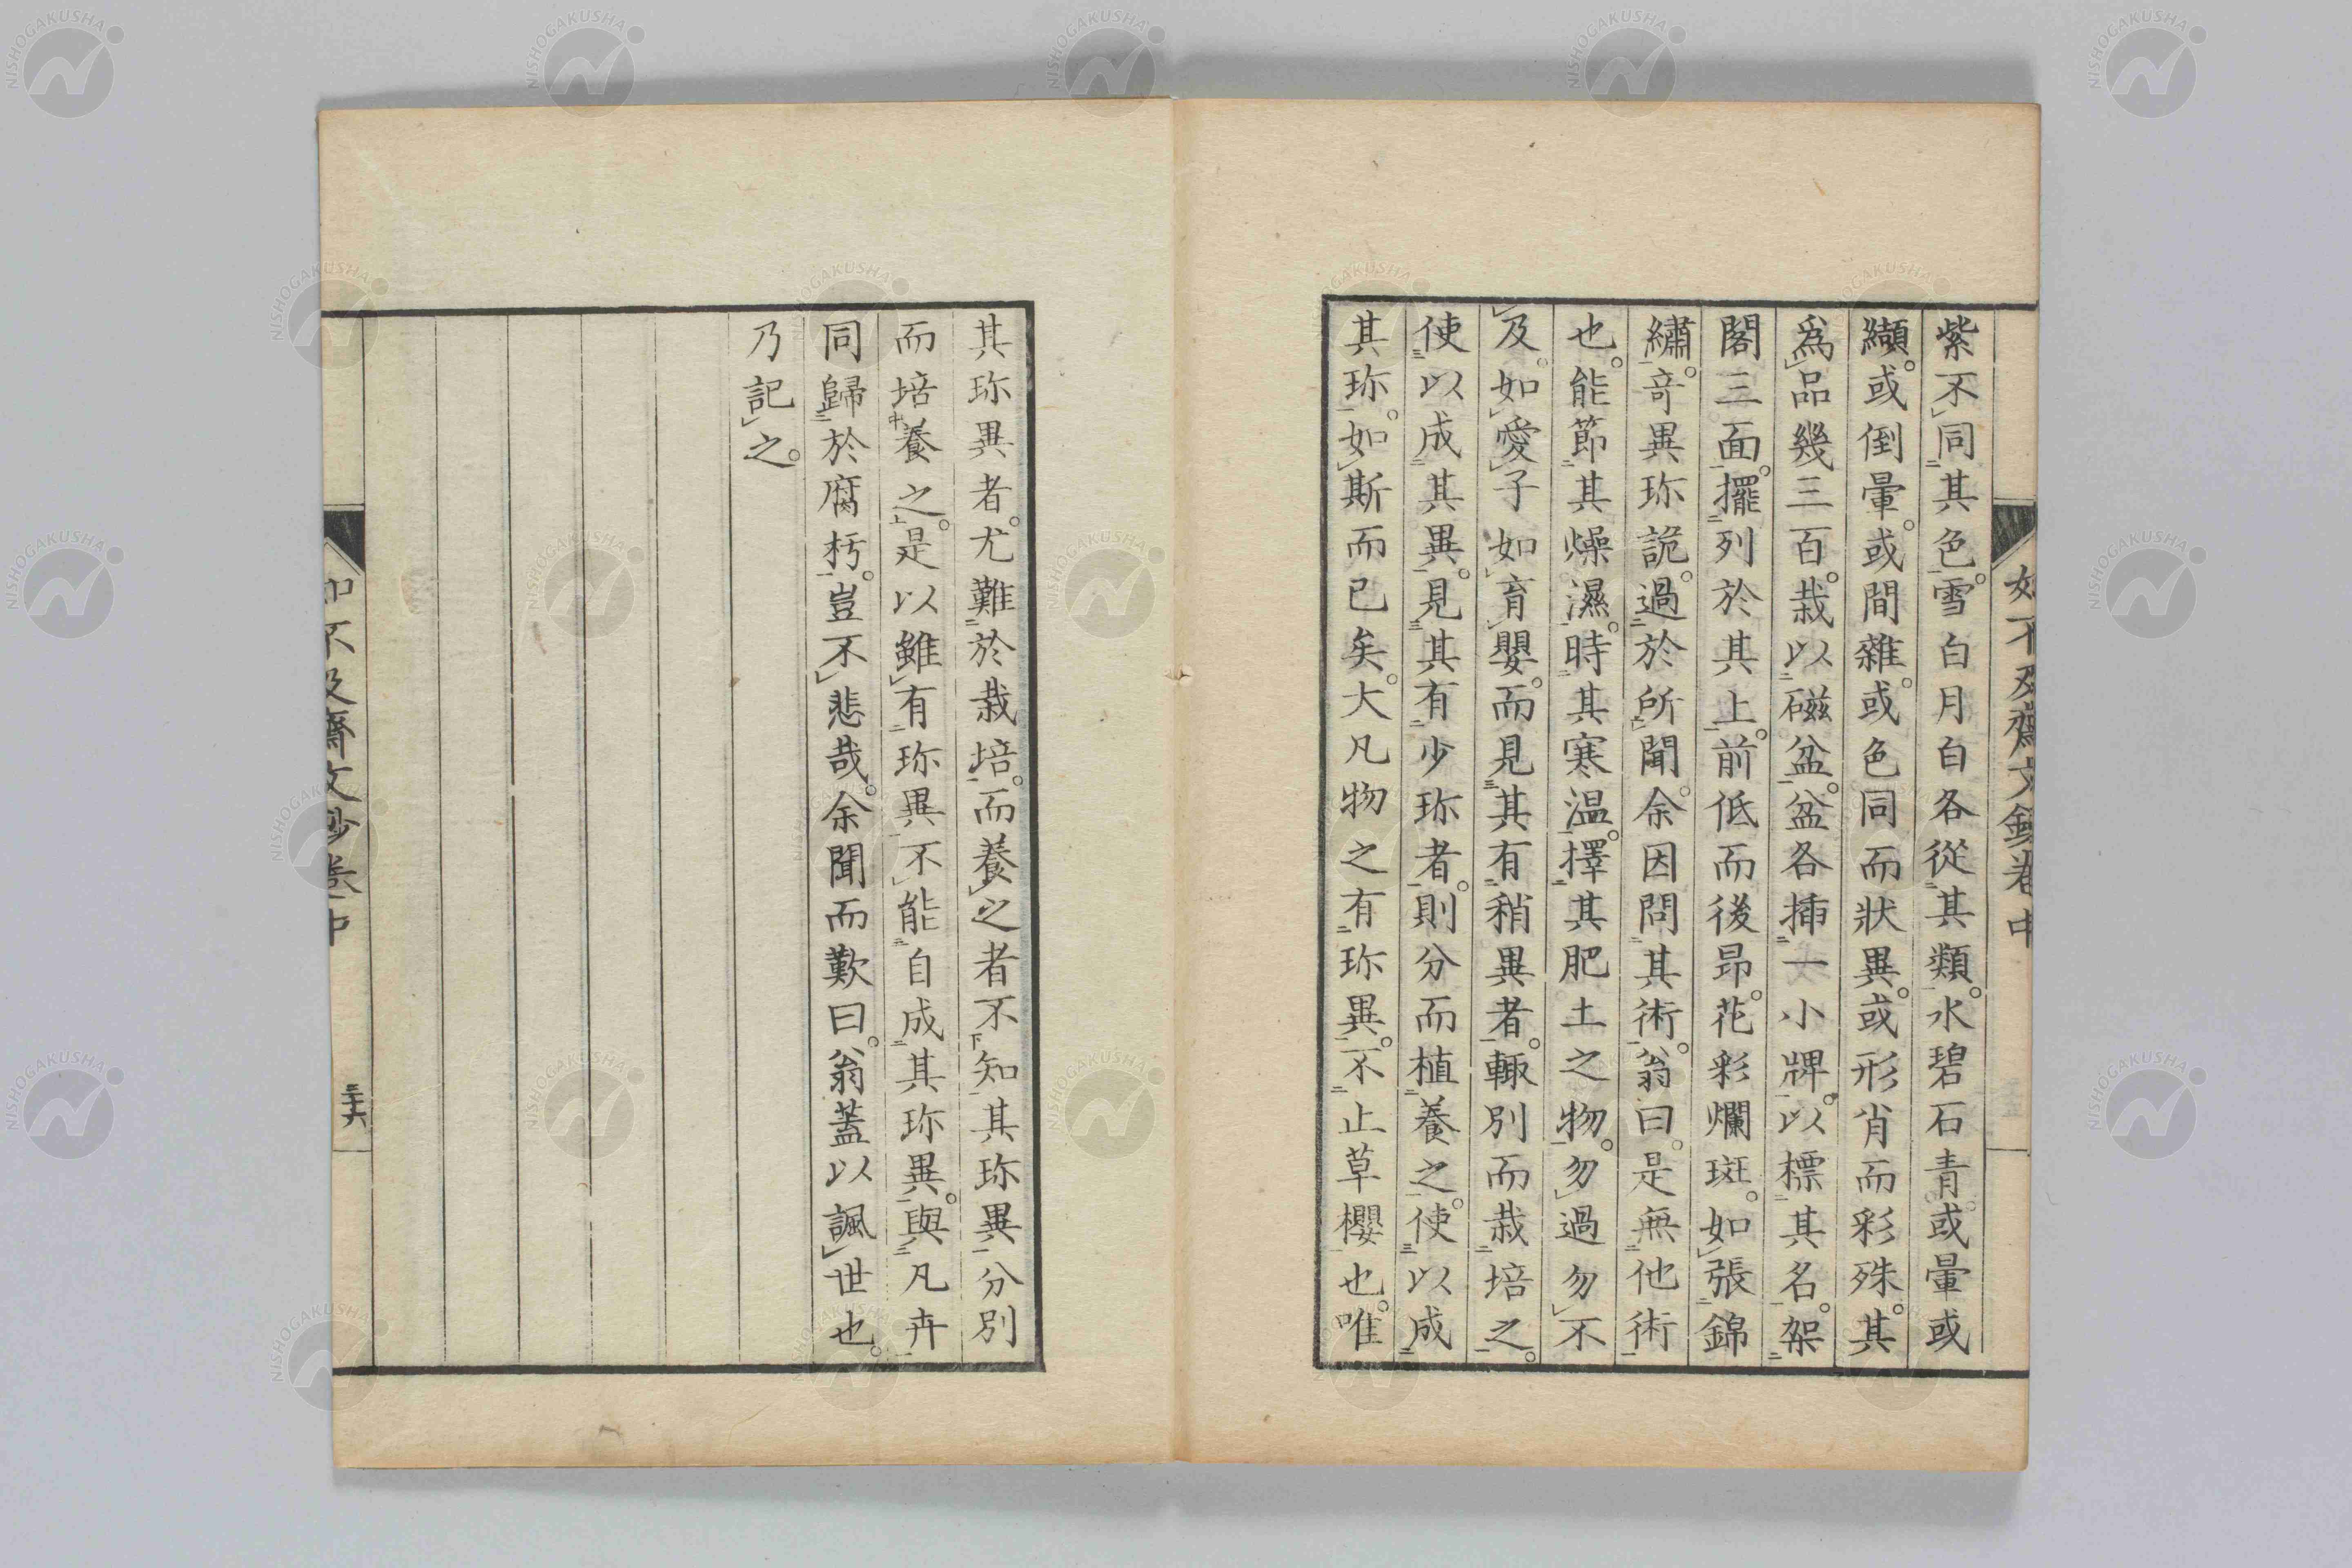 紫不同其色。雪白月白各從其類。水碧石青。或暈或
纈。或倒暈。或間雜。或色同而狀異。或形肖而彩殊。其
為品幾三百。栽以磁盆。盆各揷一小牌。以標其名。架
閣三面。擺列於其上。前低而後昂。花彩爛斑。如張錦
繡。竒異珎詭。過於所聞。余因問其術。翁曰。是無他術
也。能節其燥濕。時其寒温。擇其肥土之物。勿過勿不
及。如愛子如育嬰。而見其有稍異者。輙別而栽培之。
使以成其異。見其有少珎者。則分而植養之。使以成
其珎。如斯而已矣。大凡物之有珎異。不止草櫻也。唯
如不及齋文鈔卷中
其珎異者。尤難於栽培。而養之者不知其珎異分別
而培養之。是以雖有珎異不能自成其珎異。與凡卉
同歸於腐朽。豈不悲哉。余聞而歎曰。翁蓋以諷世也。
乃記之。
如不及齋文鈔卷中
三十六
NISHOGAKUSHA